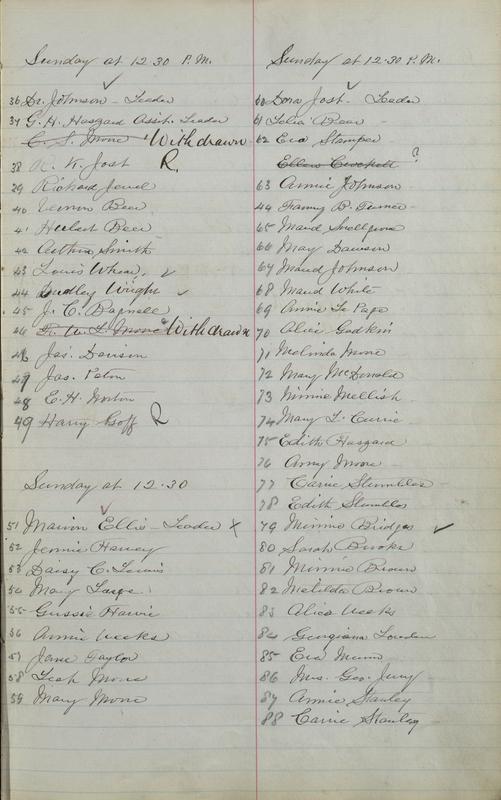 Sunday at 12.30 P.M.
36 Dr. Johnson - Leader
37 G. H. Haszard Asst. Leader
C. S. Moore Withdrawn
38 R. W. Jost R.
39 Richard Jewel
40 Vernon Beer
41 Herbert Beer
42 Arthur Smith
43 Louis
44 Dudley Wright
45 J. C. Bagnall
46 Moore Withdrawn
46 Jas. Davison
47 Jas. Paton
48 E. H. Norton
49 Harry Goff R
Sunday at 12.30
51 Marion Ellis - Leader X
52 Jennie Harvey
53 Daisy C. Lewis
54 Mary
55 Gussie Harvie
56 Annie Weeks
57 Jane Taylor
58 Leah Moore
59 Mary Moore
Sunday at 12.30 P.M.
60 Dora Jost. Leader
61 Lelia Beer
62 Eva Stamper
Ellen Crockett ?
63 Annie Johnson
64 Fanny B. Turner
65 Maud Snellgrove
66 May Dawson
67 Maud Johnson
68 Maud White
69 Annie Le Page
70 Alice Godkin
71 Melinda Moore
72 Mary McDonald
73 Minnie Mellish
74 Mary L. Currie
75 Edith Haszard
76 Amy Moore
77 Carrie Stumbles
78 Edith Stumbles
79 Minnie Bridges
80 Sarah Brooks
81 Minnie Brown
82 Matilda Brown
83 Alice Weeks
84 Georgiana Lowden
85 Eva Munn
86 Mrs. Geo. Jury
87 Annie Stanley
88 Carrie Stanley